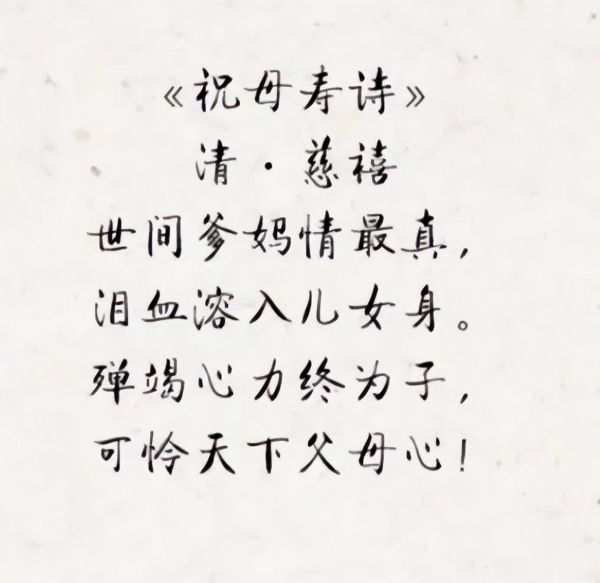 《祝母寿诗》
清·慈禧
世间爹妈情最真,
泪血溶入儿女身。
殚竭心力终为子,
可怜天下父母心!